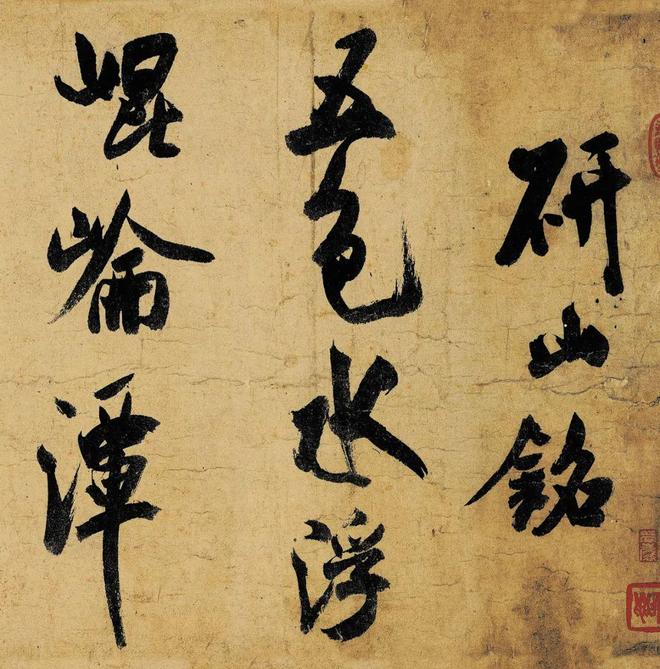 研山銘
五色水浮
崐崘潭